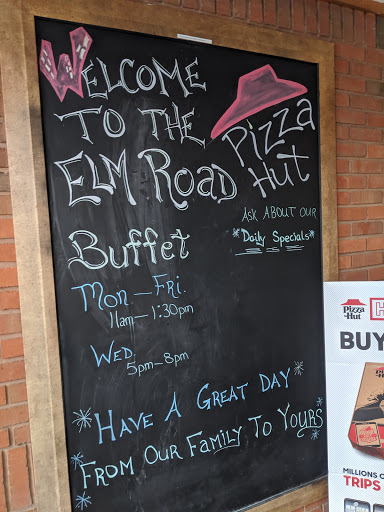 WELCOME
TO THE
ELM ROAD
Pizza
Hut
ASK ABOUT OUR
*Daily Specials*
Buffet
Mon-Fri.
11am-1:30pm
WED.
5pm-8pm
*HAVE A GREAT DAY*
*FROM OUR FAMILY TO YOURS*
Pizza
Hut
H
BUY
MILLIONS O
TRIPS